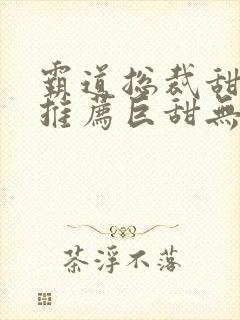 霸道总裁甜
推薦巨甜無
茶浮不落